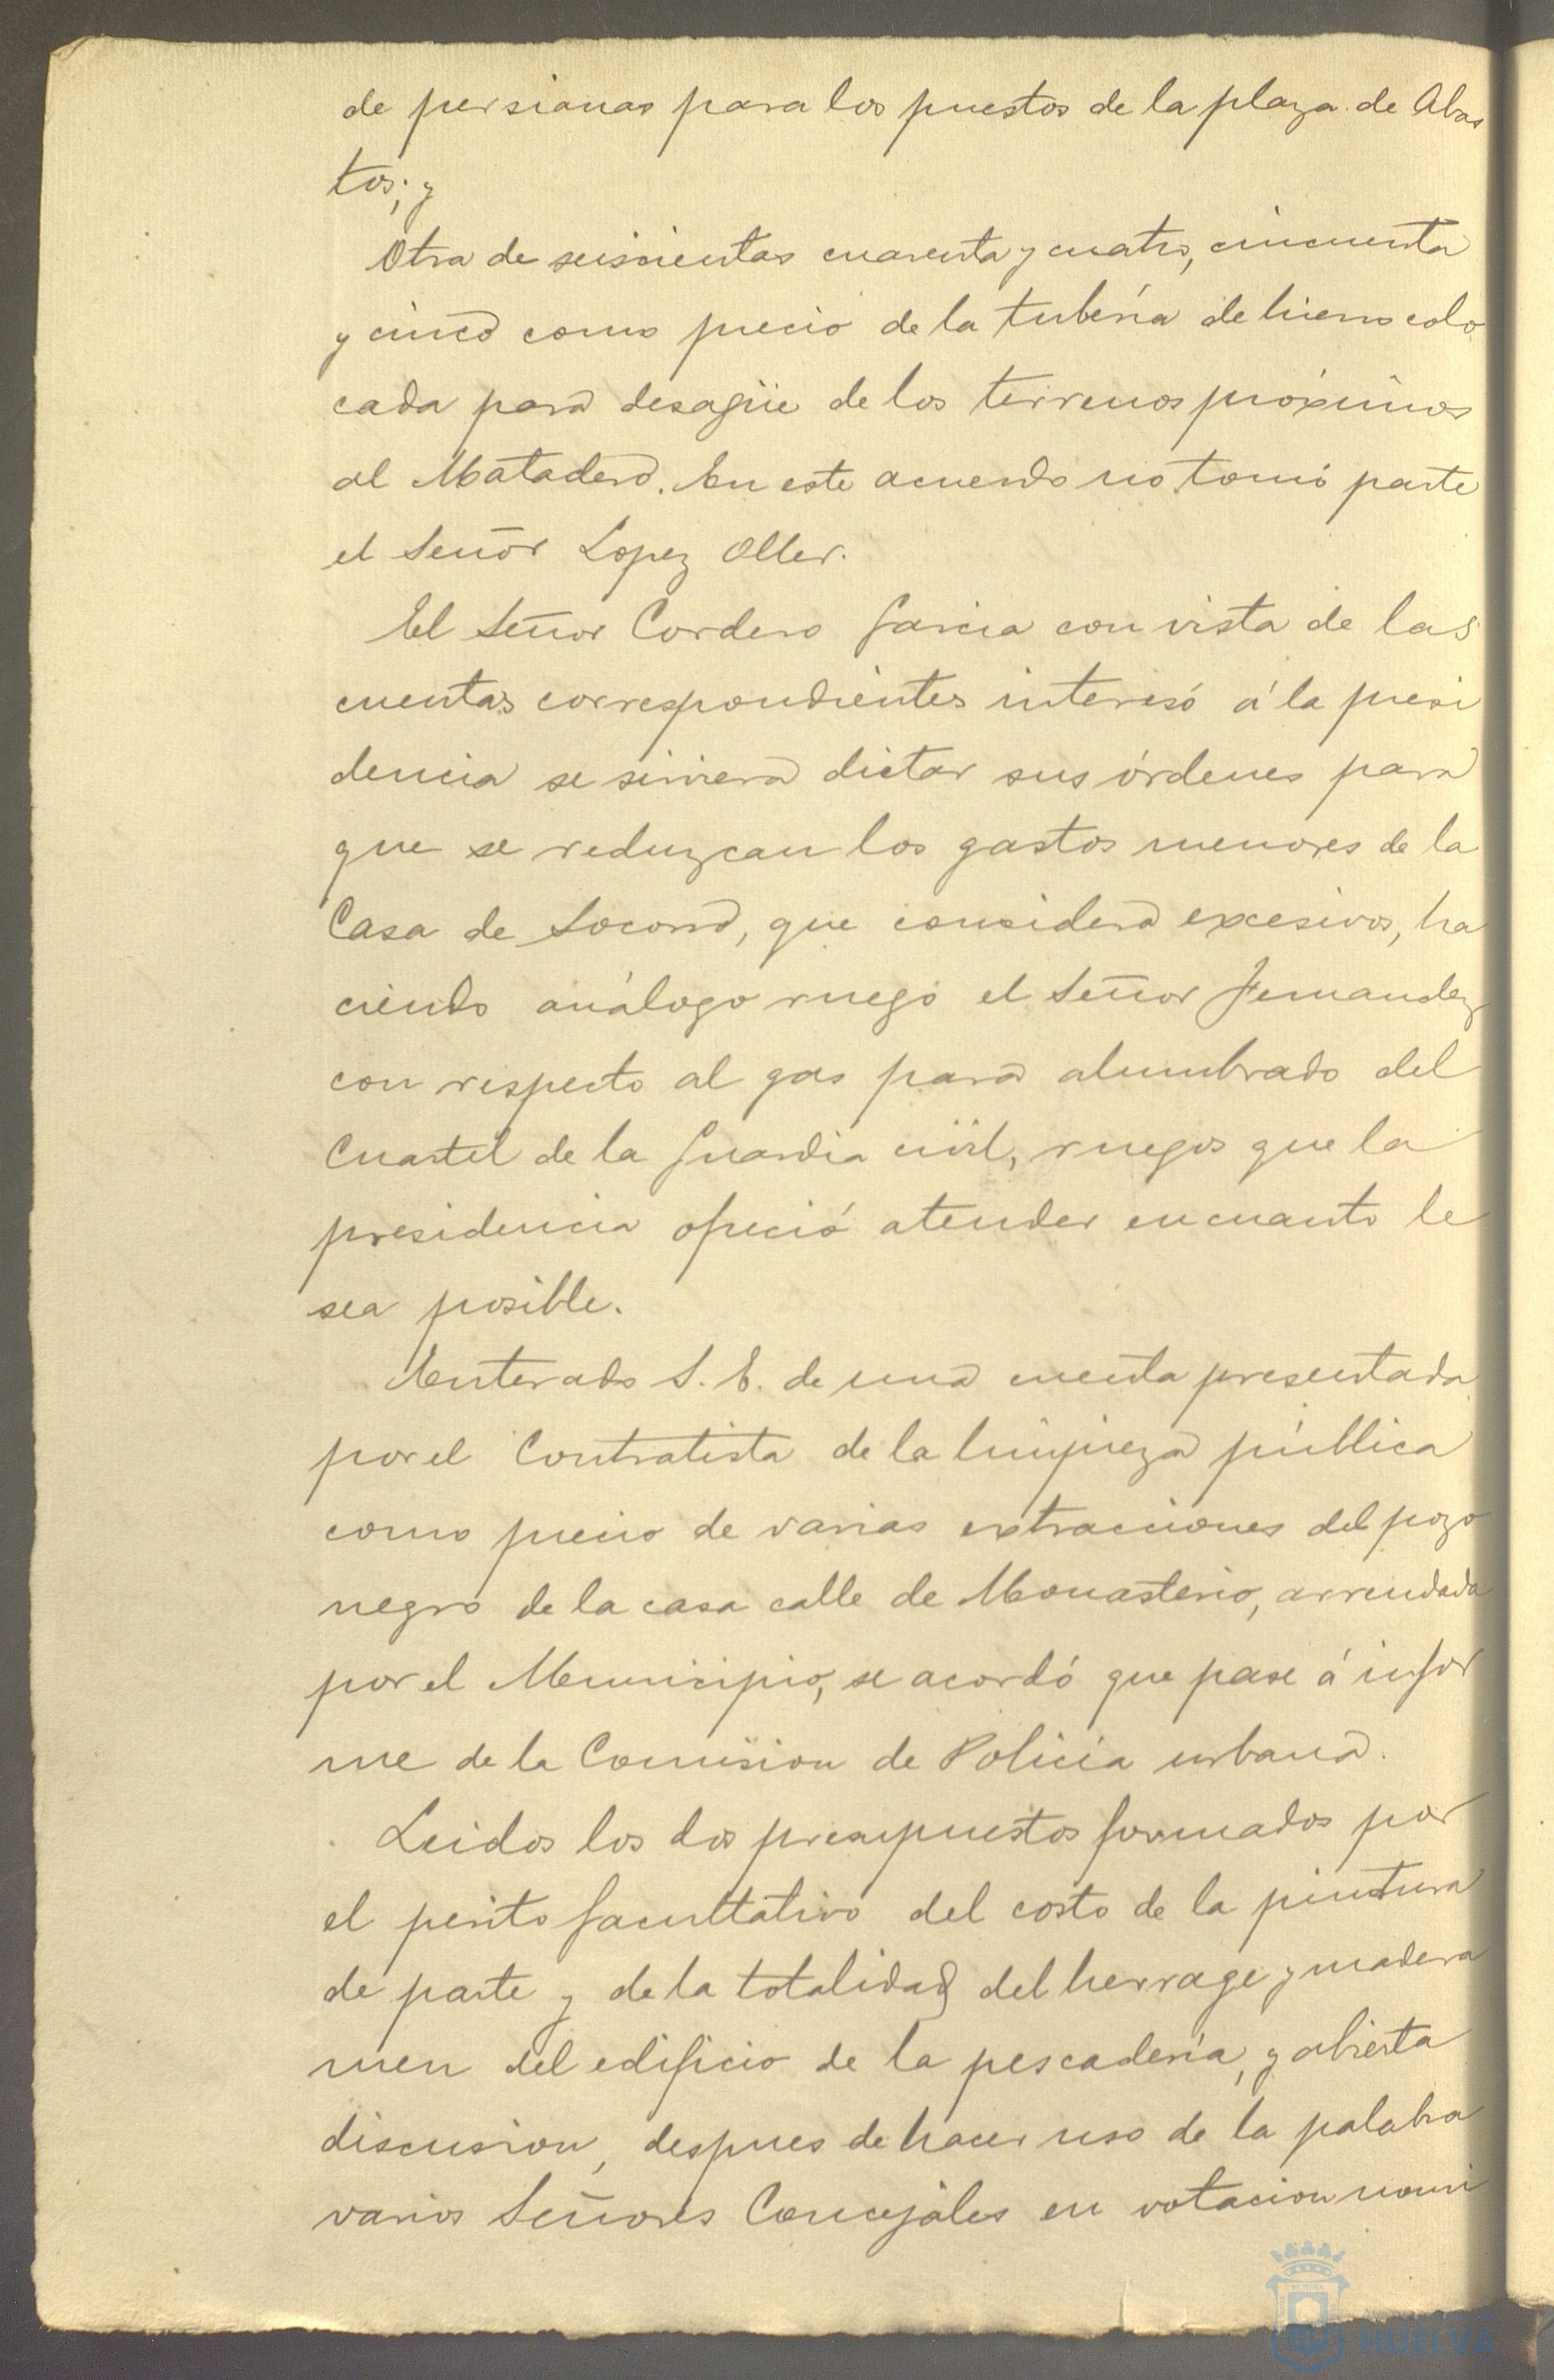 de persianas para los puestos de la plaza de Abas
tos; y
Otra de seiscientas cuarenta y cuatro, cincuenta
y cinco como precio de la tubería de hierro colo
cada para desagüe de los terrenos próximos
al Matadero. En este acuerdo no tomó parte
el Señor Lopez Oller.
El Señor Cordero Garcia con vista de las
cuentas correspondientes interesó á la presi
dencia se sirviera dictar sus órdenes para
que se reduzcan los gastos menores de la
Casa de Socorro, que considera excesivos, ha
ciendo análogo ruego el Señor Fernandez
con respecto al gas para alumbrado del
Cuartel de la Guardia civil, ruegos que la
presidencia ofreció atender en cuanto le
sea posible.
Enterado S. E. de una cuenta presentada
por el Contratista de la limpieza pública
como precio de varias extracciones del pozo
negro de la casa calle de Monasterio, arrendada
por el Municipio, se acordó que pase á infor
me de la Comision de Policía urbana.
Leidos los dos presupuestos formados por
el perito facultativo del costo de la pintura
de parte y de la totalidad del herrage y madera
men del edificio de la pescadería, y abierta
discusion, despues de hacer uso de la palabra
varios Señores Concejales en votacion nomi
HUELVA